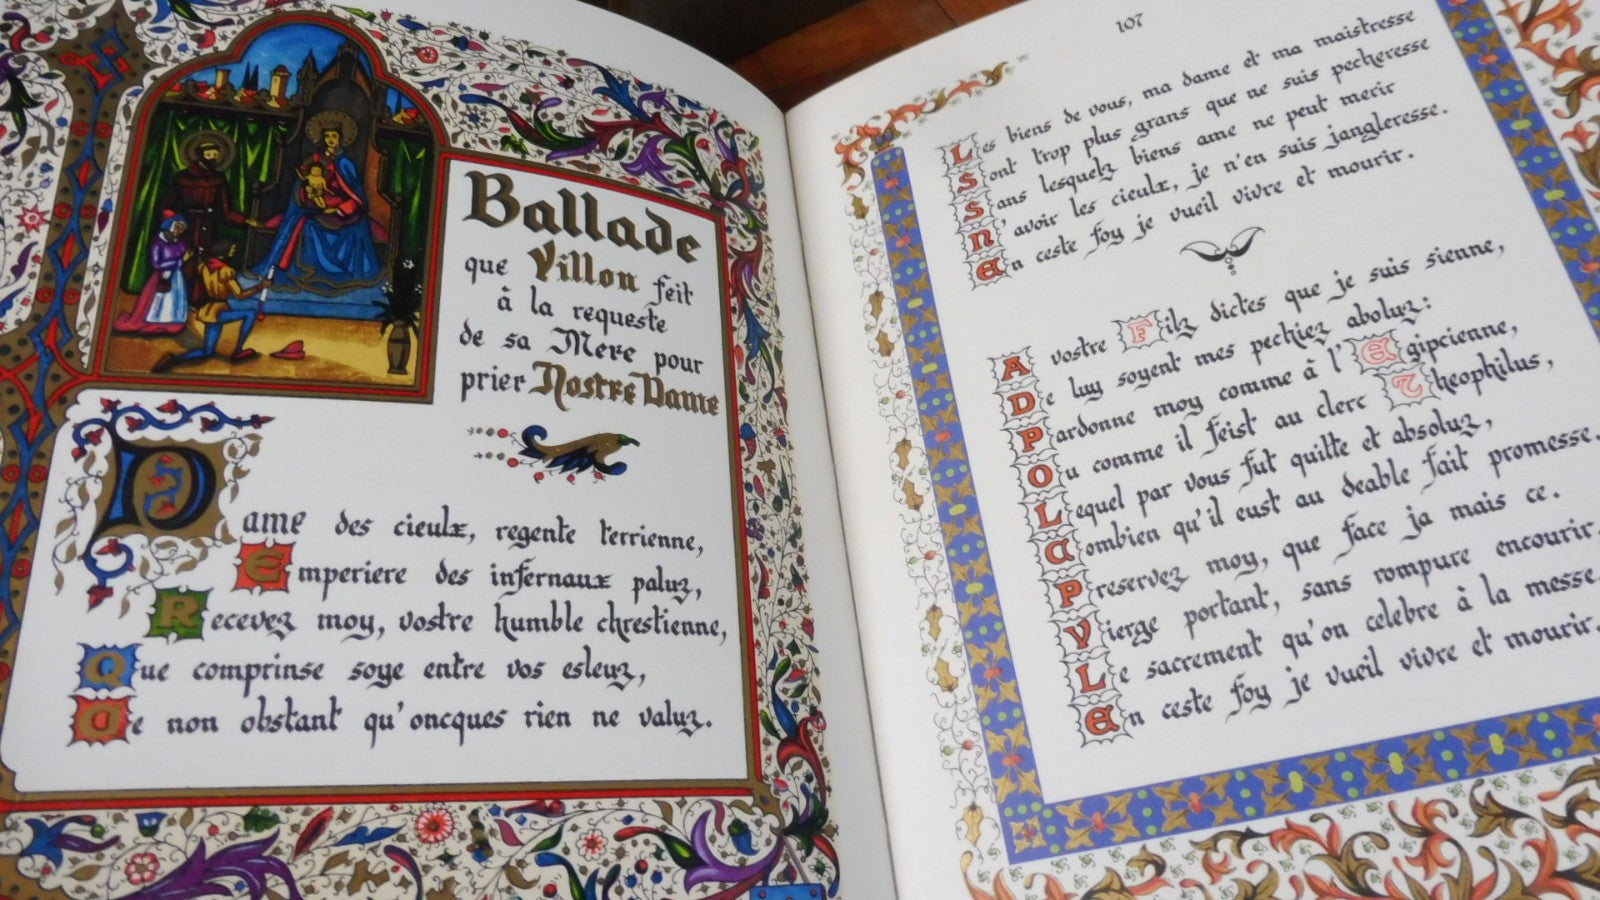 Ballade
que Villon feit
à la requeste
de sa Mere pour
prier Nostre Dame
Dame des cieulx, regente terrienne,
Emperiere des infernaux paluz,
Recevez moy, vostre humble chrestienne,
Que comprinse soye entre vos esleuz,
Ce non obstant qu'oncques rien ne valuz.
107
Les biens de vous, ma dame et ma maistresse
Sont trop plus grans que ne suis pecheresse
Sans lesquelz biens ame ne peut merir
N'avoir les cieulx, je n'en suis jangleresse.
En ceste foy je vueil vivre et mourir.
A vostre Filz dictes que je suis sienne,
De luy soyent mes pechiez aboluz:
Pardonne moy comme à l'Egipcienne,
Ou comme il feist au clerc Theophilus,
Lequel par vous fut quitte et absoluz,
Combien qu'il eust au deable fait promesse.
Preservez moy, que face ja mais ce.
Vierge portant, sans rompure encourir,
Le sacrement qu'on celebre à la messe.
En ceste foy je vueil vivre et mourir.